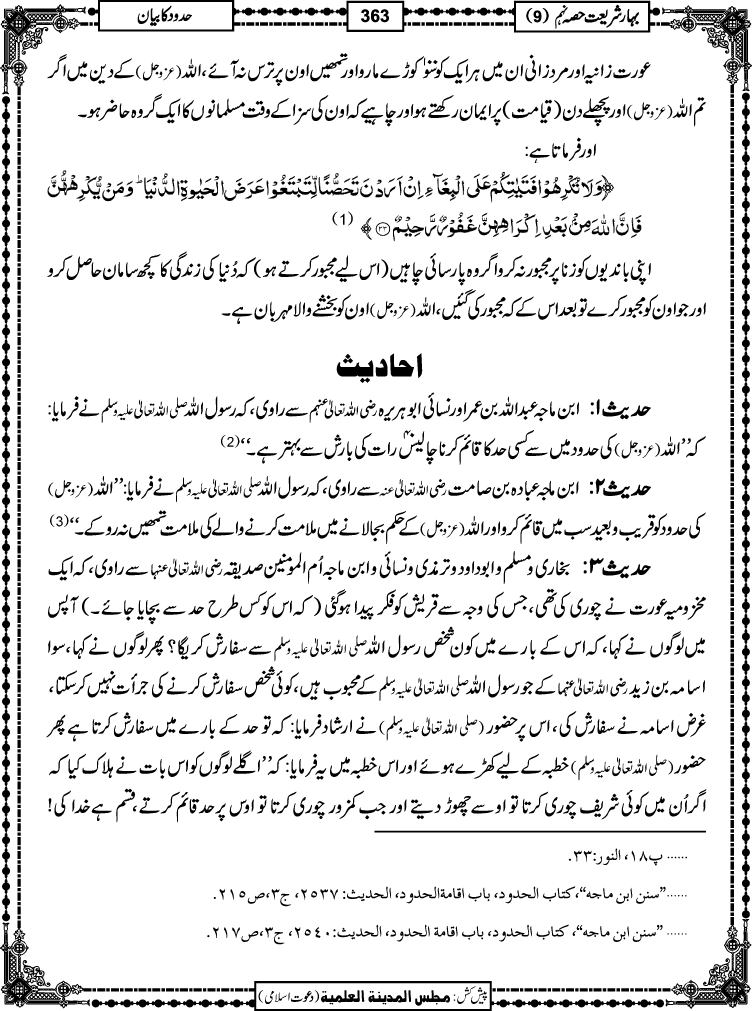 بہارِ شریعت حصہ نہم (9)
363
حدود کا بیان
عورت زانیہ اور مرد زانی ان میں ہر ایک کو سَو سَو کوڑے مارو اور تمھیں اون پر ترس نہ آئے، اللہ (عزوجل) کے دین میں اگر
تم اللہ (عزوجل) اور پچھلے دن (قیامت) پر ایمان رکھتے ہو اور چاہیے کہ اون کی سزا کے وقت مسلمانوں کا ایک گروہ حاضر ہو۔
اور فرماتا ہے:
﴿وَلَا تُكْرِهُوْا فَتَيٰتِكُمْ عَلَى الْبِغَآءِ اِنْ اَرَدْنَ تَحَصُّنًا لِّتَبْتَغُوْا عَرَضَ الْحَيٰوةِ الدُّنْيَا ؕ وَمَنْ يُّكْرِهْهُّنَّ
فَاِنَّ اللّٰهَ مِنْۢ بَعْدِ اِكْرَاهِهِنَّ غَفُوْرٌ رَّحِيْمٌ ﴿۳۳﴾﴾ (1)
اپنی باندیوں کو زنا پر مجبور نہ کرو اگر وہ پارسائی چاہیں (اس لیے مجبور کرتے ہو) کہ دُنیا کی زندگی کا کچھ سامان حاصل کرو
اور جو اون کو مجبور کرے تو بعد اس کے کہ مجبور کی گئیں، اللہ (عزوجل) اون کو بخشنے والا مہربان ہے۔
احادیث
حدیث ۱: ابن ماجہ عبداللہ بن عمر اور نسائی ابوہریرہ رضی اللہ تعالیٰ عنہم سے راوی، کہ رسول اللہ صلی اللہ تعالیٰ علیہ وسلم نے فرمایا:
کہ ’’اللہ (عزوجل) کی حدود میں سے کسی حد کا قائم کرنا چالیس ۴۰ رات کی بارش سے بہتر ہے۔‘‘ (2)
حدیث ۲: ابن ماجہ عبادہ بن صامت رضی اللہ تعالیٰ عنہ سے راوی، کہ رسول اللہ صلی اللہ تعالیٰ علیہ وسلم نے فرمایا: ’’اللہ (عزوجل)
کی حدود کو قریب و بعید سب میں قائم کرو اور اللہ (عزوجل) کے حکم بجالانے میں ملامت کرنے والے کی ملامت تمھیں نہ روکے۔‘‘ (3)
حدیث ۳: بخاری و مسلم و ابوداود و ترمذی و نسائی و ابن ماجہ اُم المومنین صدیقہ رضی اللہ تعالیٰ عنہا سے راوی، کہ ایک
مخزومیہ عورت نے چوری کی تھی، جس کی وجہ سے قریش کو فکر پیدا ہوگئی (کہ اس کو کس طرح حد سے بچایا جائے۔) آپس
میں لوگوں نے کہا، کہ اس کے بارے میں کون شخص رسول اللہ صلی اللہ تعالیٰ علیہ وسلم سے سفارش کریگا؟ پھر لوگوں نے کہا، سوا
اسامہ بن زید رضی اللہ تعالیٰ عنہما کے جو رسول اللہ صلی اللہ تعالیٰ علیہ وسلم کے محبوب ہیں، کوئی شخص سفارش کرنے کی جرأت نہیں کرسکتا،
غرض اسامہ نے سفارش کی، اس پر حضور (صلی اللہ تعالیٰ علیہ وسلم) نے ارشاد فرمایا: کہ تو حد کے بارے میں سفارش کرتا ہے پھر
حضور (صلی اللہ تعالیٰ علیہ وسلم) خطبہ کے لیے کھڑے ہوئے اور اس خطبہ میں یہ فرمایا: کہ ’’اگلے لوگوں کو اس بات نے ہلاک کیا کہ
اگر اُن میں کوئی شریف چوری کرتا تو اوسے چھوڑ دیتے اور جب کمزور چوری کرتا تو اوس پر حد قائم کرتے، قسم ہے خدا کی!
...... پ۱۸، النور: ۳۳.
......”سنن ابن ماجه“، كتاب الحدود، باب اقامة الحدود، الحديث: ۲۵۳۷، ج۳، ص۲۱۵.
......”سنن ابن ماجه“، كتاب الحدود، باب اقامة الحدود، الحديث: ۲۵۴۰، ج۳، ص۲۱۷.
پیش کش: مجلس المدينة العلمية (دعوت اسلامی)